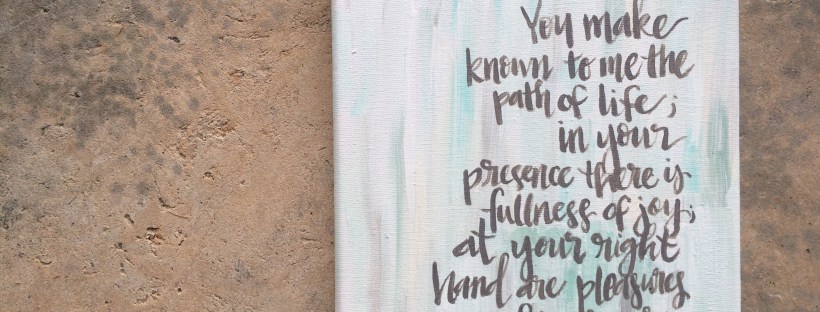 You make
known to me the
path of life;
in your
presence there is
fullness of joy;
at your right
hand are pleasures